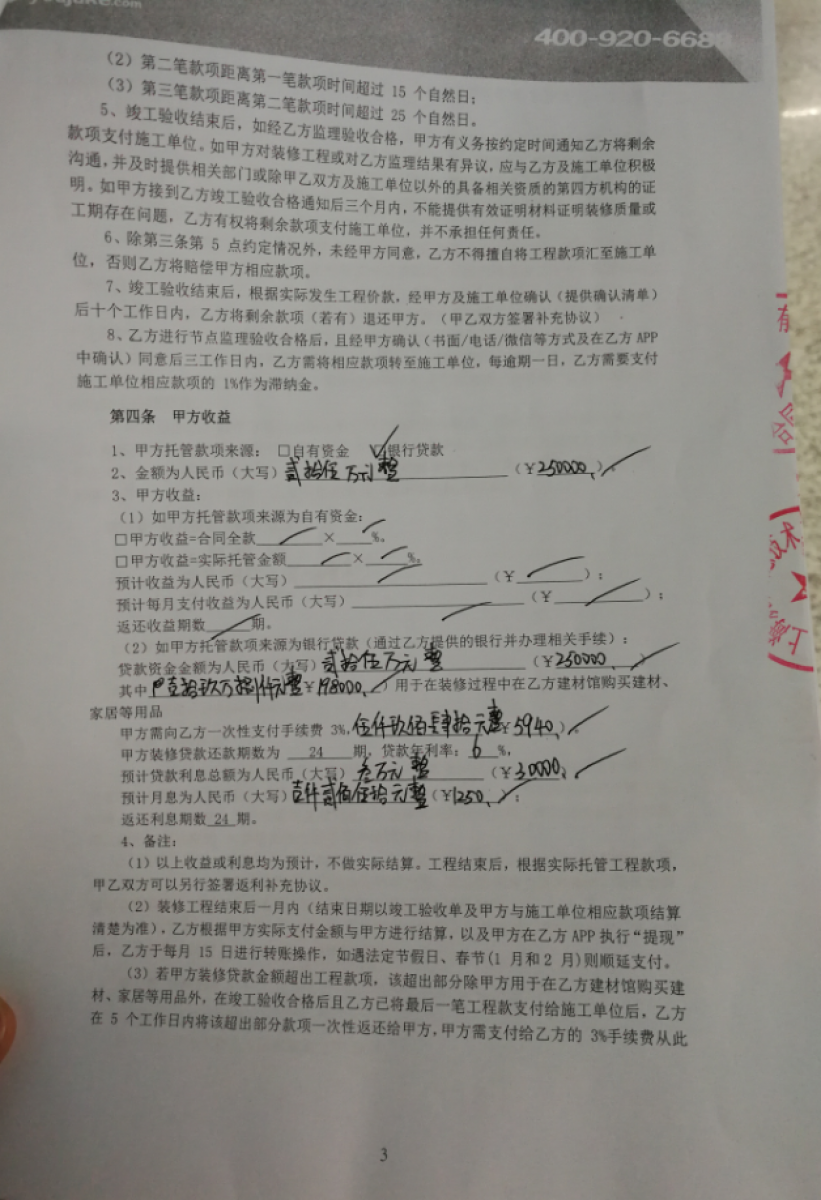 400-920-668
(2) 第二笔款项距离第一笔款项时间超过 15 个自然日;
(3) 第三笔款项距离第二笔款项时间超过 25 个自然日。
5、竣工验收结束后，如经乙方监理验收合格，甲方有义务按约定时间通知乙方将剩余
款项支付施工单位。如甲方对装修工程或对乙方监理结果有异议，应与乙方及施工单位积极
沟通，并及时提供相关部门或除甲乙双方及施工单位以外的具备相关资质的第四方机构的证
明。如甲方接到乙方竣工验收合格通知后三个月内，不能提供有效证明材料证明装修质量或
工期存在问题，乙方有权将剩余款项支付施工单位，并不承担任何责任。
6、除第三条第 5 点约定情况外，未经甲方同意，乙方不得擅自将工程款项汇至施工单
位，否则乙方将赔偿甲方相应款项。
7、竣工验收结束后，根据实际发生工程价款，经甲方及施工单位确认（提供确认清单）
后十个工作日内，乙方将剩余款项（若有）退还甲方。（甲乙双方签署补充协议）
8、乙方进行节点监理验收合格后，且经甲方确认（书面/电话/微信等方式及在乙方 APP
中确认）同意后三工作日内，乙方需将相应款项转至施工单位，每逾期一日，乙方需要支付
施工单位相应款项的 1%作为滞纳金。
第四条 甲方收益
1、甲方托管款项来源: □自有资金 ☑银行贷款
2、金额为人民币（大写）贰拾伍万元整（￥250000.）
3、甲方收益:
(1) 如甲方托管款项来源为自有资金:
□甲方收益=合同全款 × %。
□甲方收益=实际托管金额 × %。
预计收益为人民币（大写） （￥ ）;
预计每月支付收益为人民币（大写） （￥ ）;
返还收益期数 期。
(2) 如甲方托管款项来源为银行贷款（通过乙方提供的银行并办理相关手续）:
贷款资金金额为人民币（大写）贰拾伍万元整（￥250000
其中 壹拾玖万捌仟元整￥198000.）用于在装修过程中在乙方建材馆购买建材、
家居等用品
甲方需向乙方一次性支付手续费 3%，伍仟玖佰肆拾元整￥5940.）。
甲方装修贷款还款期数为 24 期，贷款年利率: 6 %，
预计贷款利息总额为人民币（大写）叁万元整（￥30000.
预计月息为人民币（大写）壹仟贰佰伍拾元整（￥1250.）;
返还利息期数 24 期。
4、备注:
(1) 以上收益或利息均为预计，不做实际结算。工程结束后，根据实际托管工程款项，
甲乙双方可以另行签署返利补充协议。
(2) 装修工程结束后一月内（结束日期以竣工验收单及甲方与施工单位相应款项结算
清楚为准），乙方根据甲方实际支付金额与甲方进行结算，以及甲方在乙方 APP 执行“提现”
后，乙方于每月 15 日进行转账操作，如遇法定节假日、春节(1 月和 2 月)则顺延支付。
(3) 若甲方装修贷款金额超出工程款项，该超出部分除甲方用于在乙方建材馆购买建
材、家居等用品外，在竣工验收合格后且乙方已将最后一笔工程款支付给施工单位后，乙方
在 5 个工作日内将该超出部分款项一次性返还给甲方，甲方需支付给乙方的 3%手续费从此
3